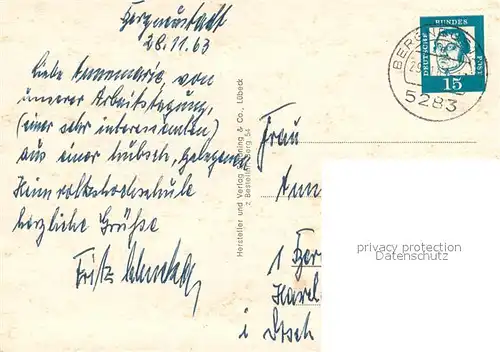 Bergneustadt
28.11.63
Liebe Annemarie von
unserer Arbeitstagung,
(einer sehr interessanten)
aus einer hübsch gelegenen
Heimvolkshochschule
herzliche Grüße
Fritz
Hersteller und Verlag Schöning & Co., Lübeck
z Bestellnr. Berg 54
BERGNEU
5283
DEUTSCHE
BUNDES
POST
15
Frau
Ann
1 Ber
Karl
i
privacy protection
Datenschutz